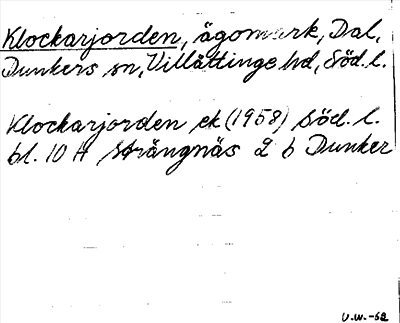 Klockarjorden, ägomark, Dal,
Dunkers sn, Villåttinge hd, Söd. l.
Klockarjorden ek (1958) Söd. l.
bl. 10 H Strängnäs 2 b Dunker
U.W.-62